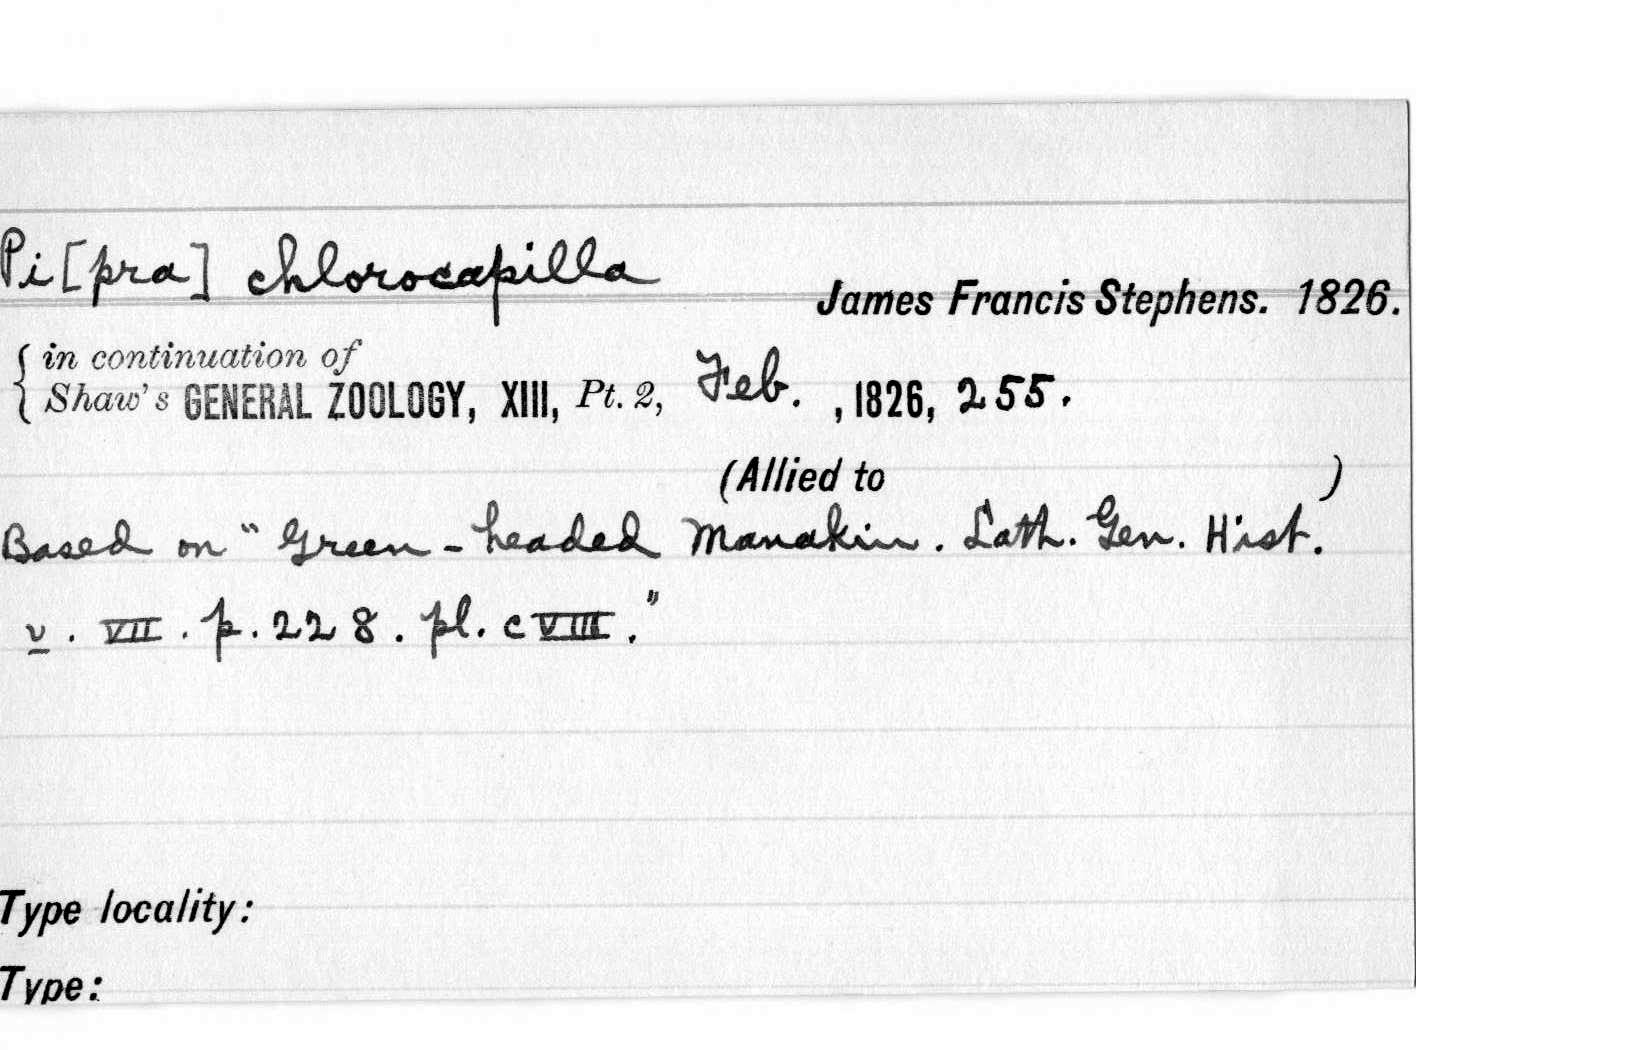 Pi[pra] chlorocapilla
James Francis Stephens. 1826.
in continuation of
Shaw's GENERAL ZOOLOGY, XIII, Pt. 2, Feb. , 1826, 255.
(Allied to )
Based on "Green-headed Manakin. Lath. Gen. Hist.
v. VII. p. 228. pl. cVIII."
Type locality:
Type: